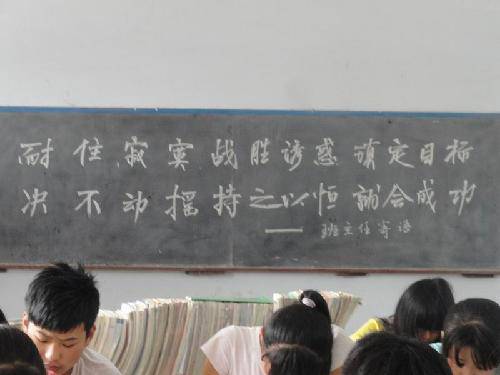 耐住寂寞战胜诱惑锁定目标
决不动摇持之以恒就会成功
——班主任寄语